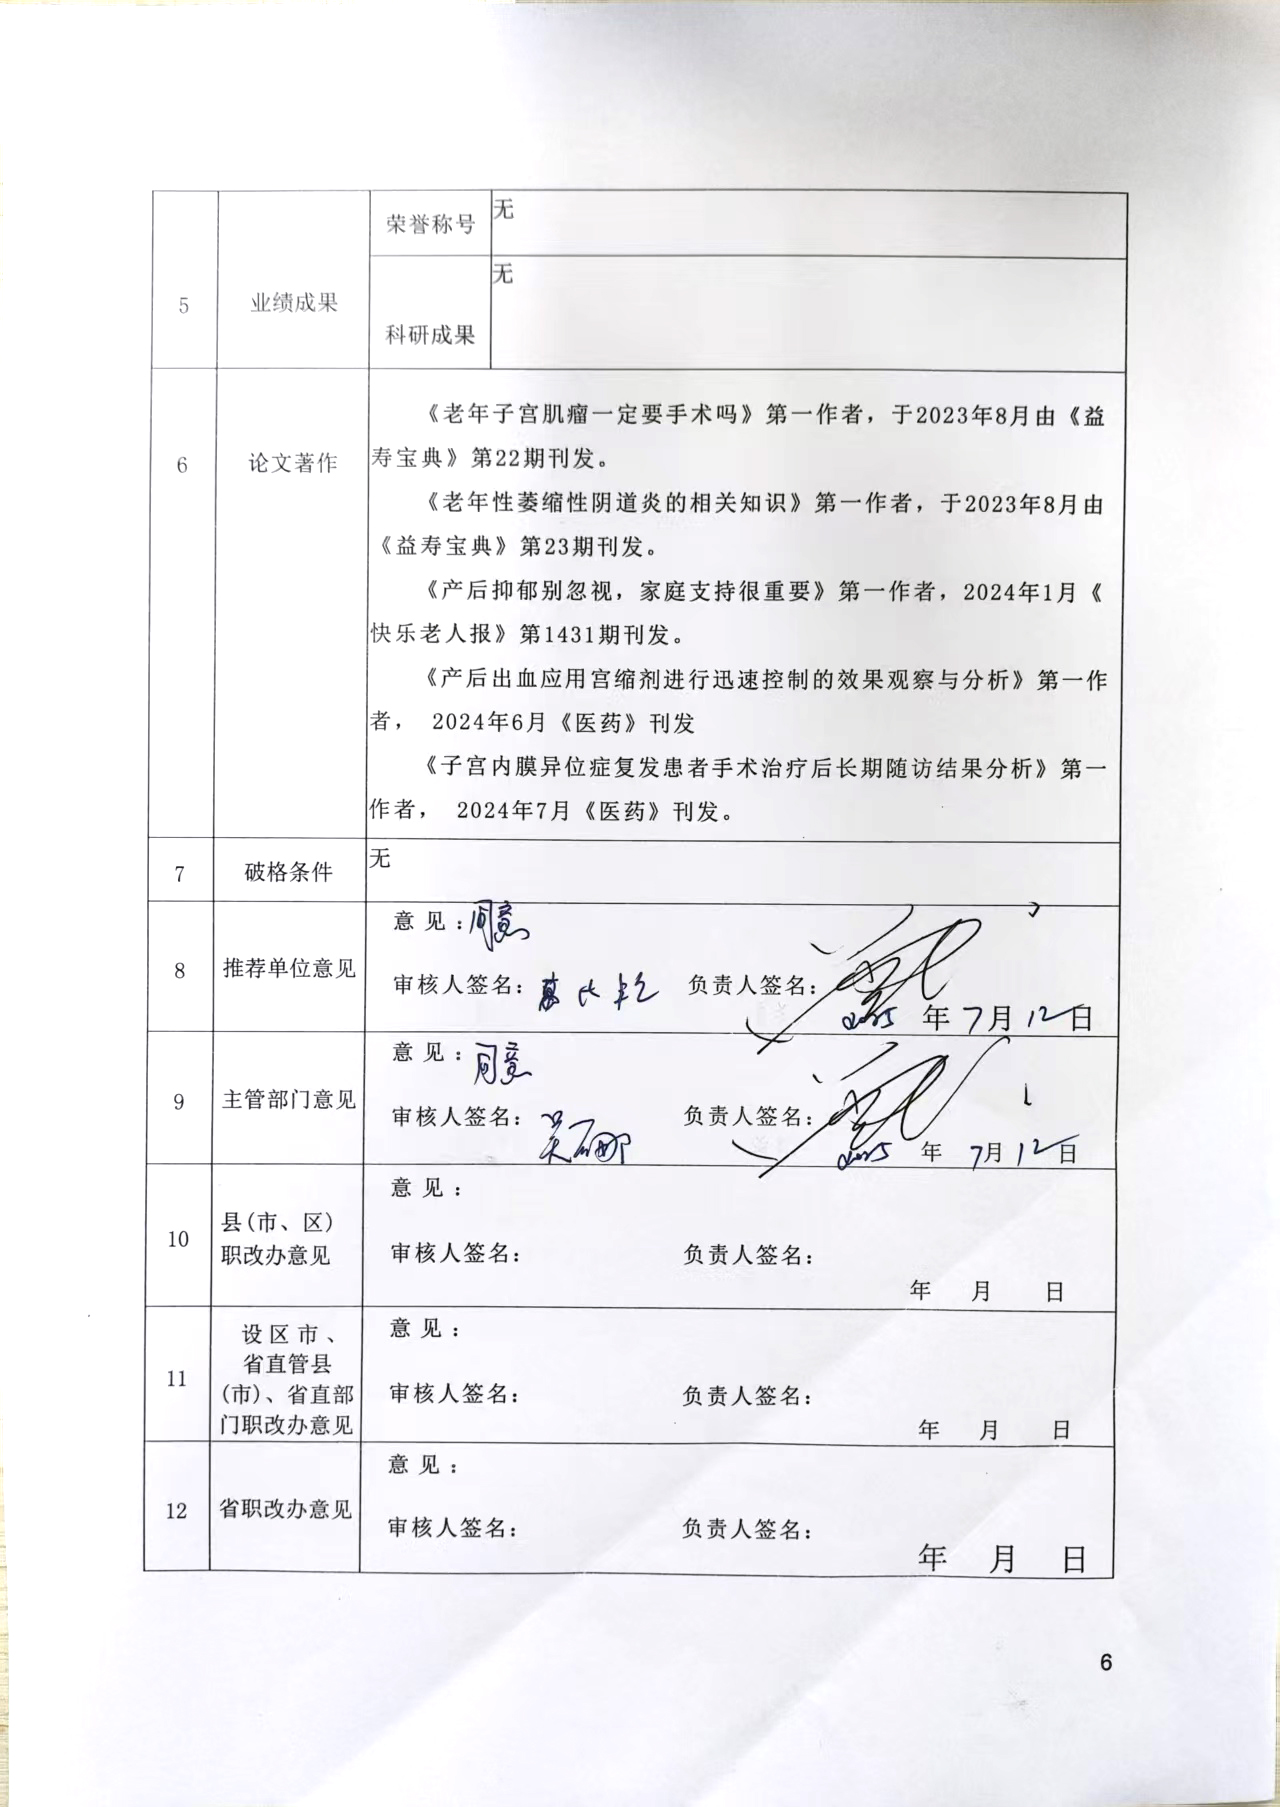 荣誉称号 无
5 业绩成果
科研成果 无
6 论文著作
《老年子宫肌瘤一定要手术吗》第一作者，于2023年8月由《益
寿宝典》第22期刊发。
《老年性萎缩性阴道炎的相关知识》第一作者，于2023年8月由
《益寿宝典》第23期刊发。
《产后抑郁别忽视，家庭支持很重要》第一作者，2024年1月《
快乐老人报》第1431期刊发。
《产后出血应用宫缩剂进行迅速控制的效果观察与分析》第一作
者， 2024年6月《医药》刊发
《子宫内膜异位症复发患者手术治疗后长期随访结果分析》第一
作者， 2024年7月《医药》刊发。
7 破格条件 无
8 推荐单位意见
意 见：同意
审核人签名： 负责人签名：
2025 年 7月 12日
9 主管部门意见
意 见：同意
审核人签名： 负责人签名：
2025 年 7月 12日
10 县(市、区)
职改办意见
意 见：
审核人签名： 负责人签名：
年 月 日
11 设区市、
省直管县
(市)、省直部
门职改办意见
意 见：
审核人签名： 负责人签名：
年 月 日
12 省职改办意见
意 见：
审核人签名： 负责人签名：
年 月 日
6